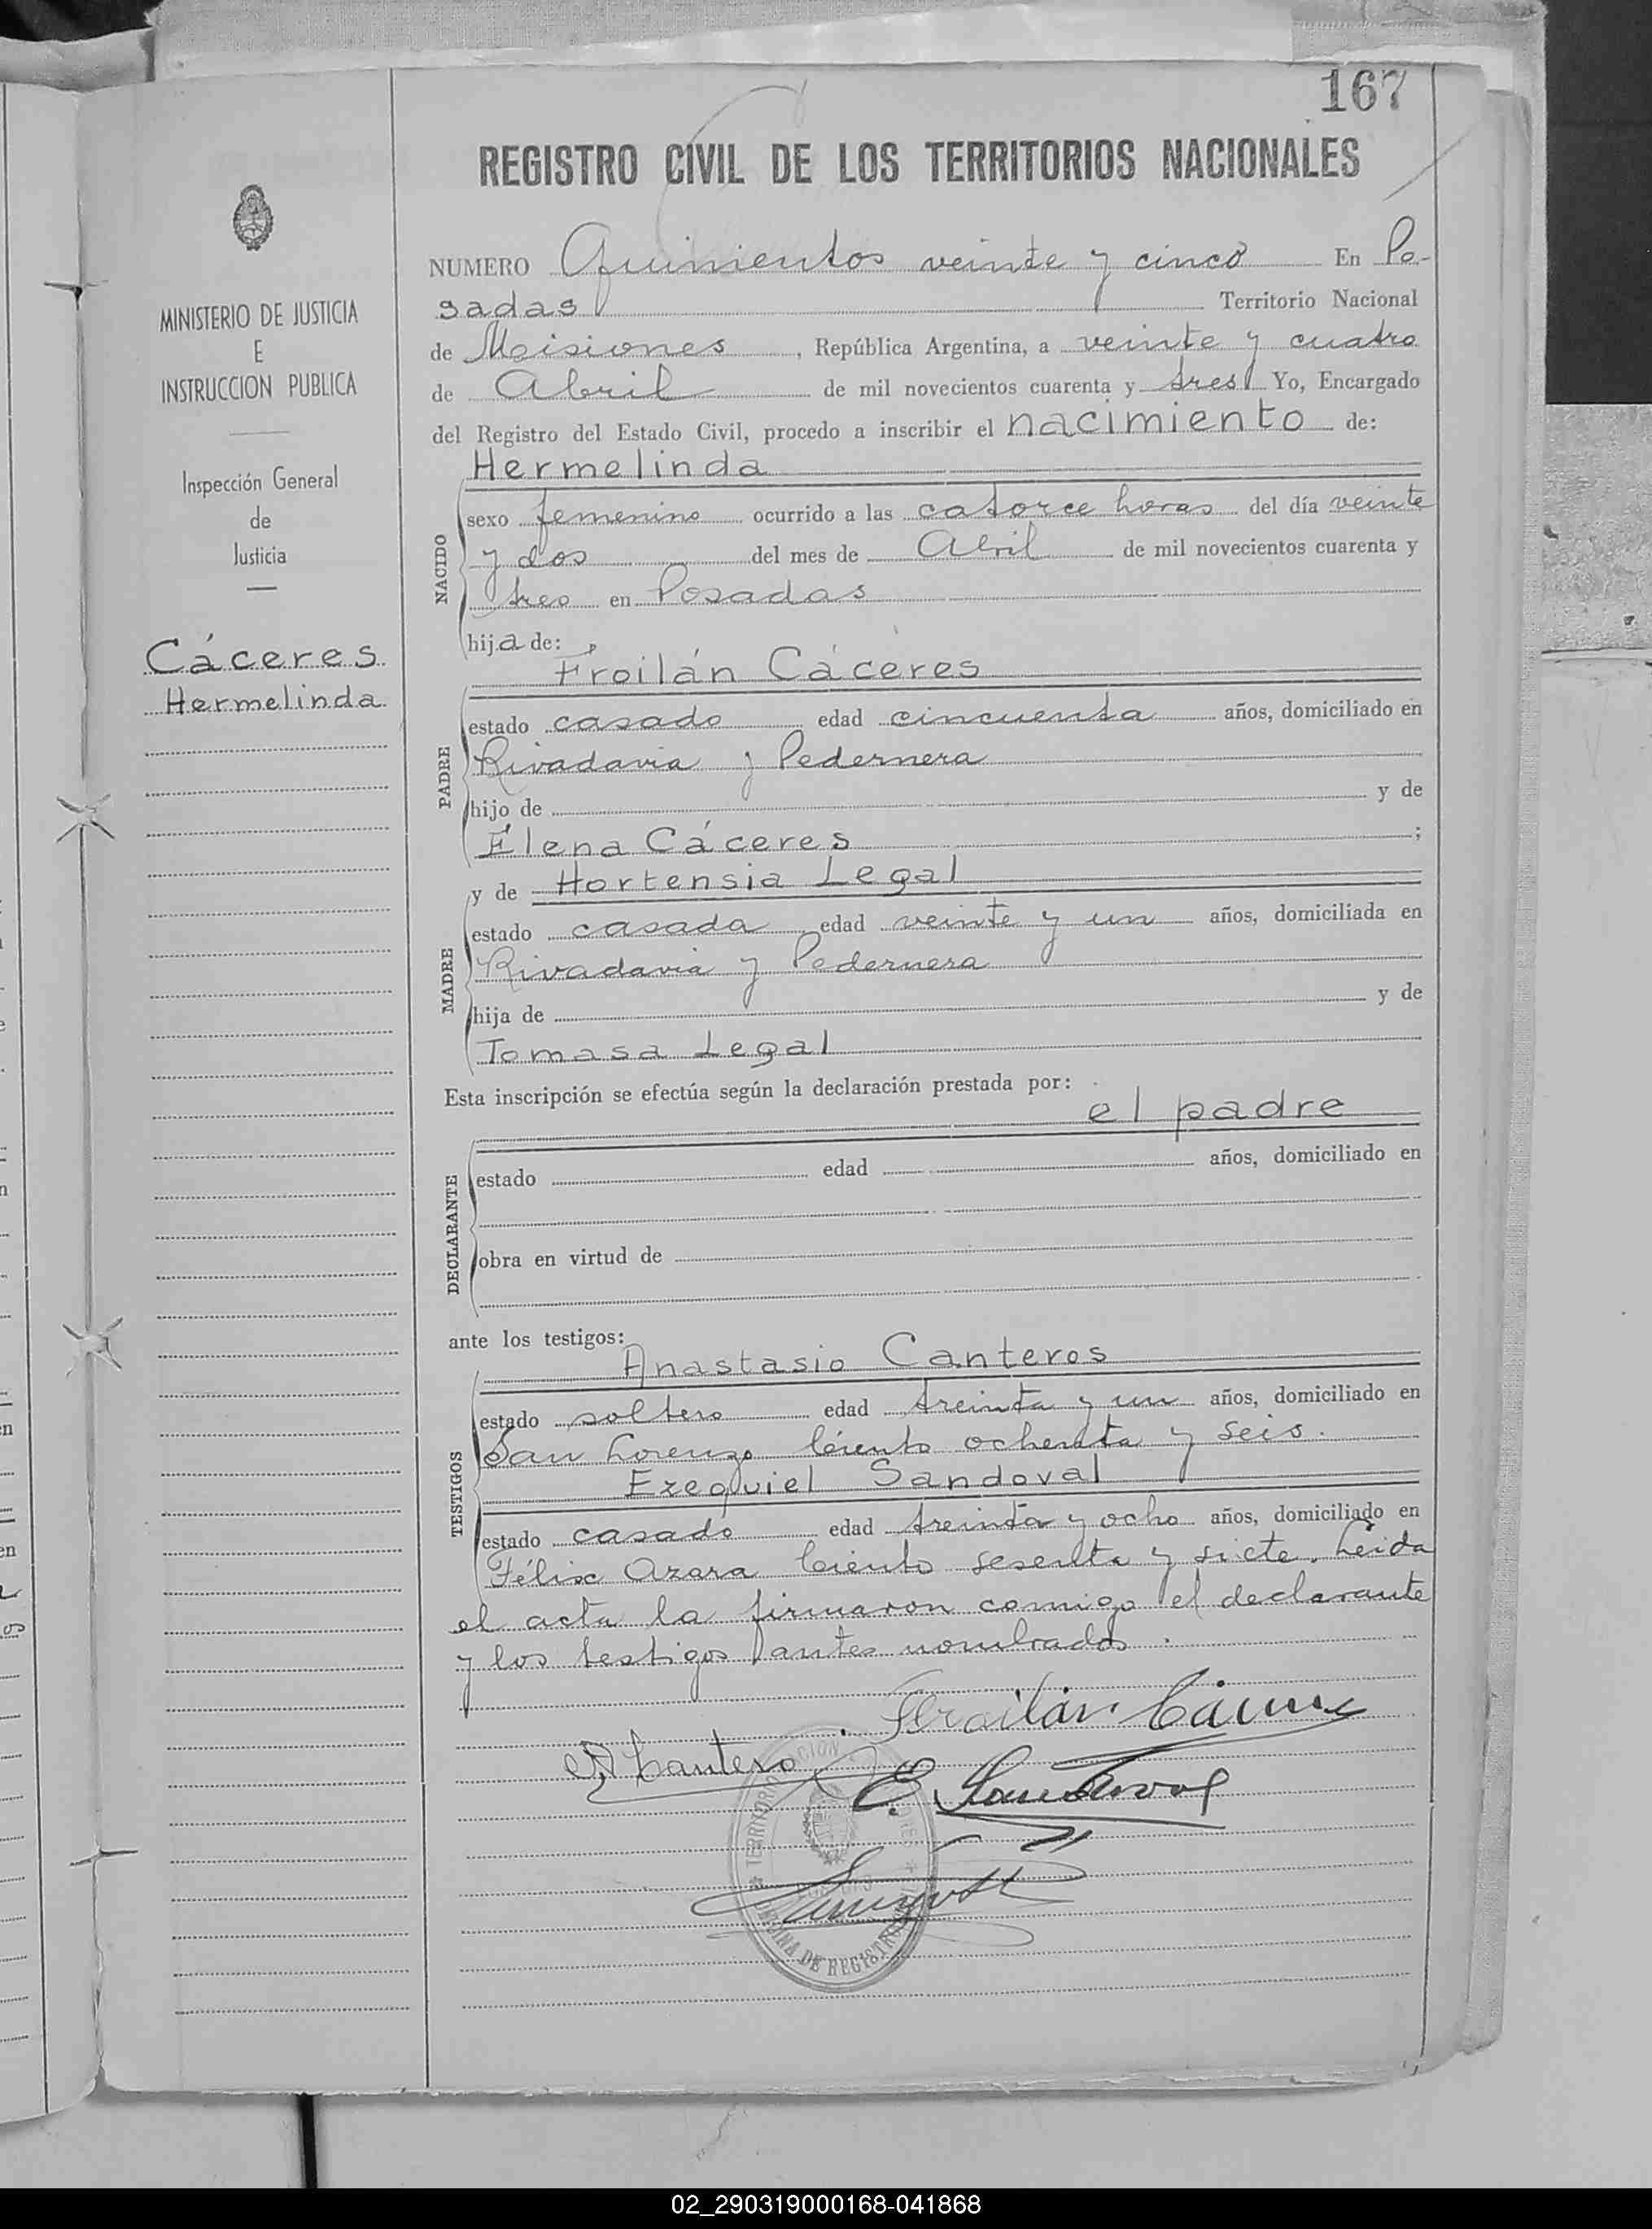 167
REGISTRO CIVIL DE LOS TERRITORIOS NACIONALES
MINISTERIO DE JUSTICIA
E
INSTRUCCION PUBLICA
Inspección General
de
Justicia
Cáceres
Hermelinda
NUMERO Quinientos veinte y cinco En Po-
sadas Territorio Nacional
de Misiones, República Argentina, a veinte y cuatro
de Abril de mil novecientos cuarenta y tres Yo, Encargado
del Registro del Estado Civil, procedo a inscribir el nacimiento de:
Hermelinda
NACIDO
sexo femenino ocurrido a las catorce horas del día veinte
y dos del mes de Abril de mil novecientos cuarenta y
tres en Posadas
hija de:
Froilán Cáceres
PADRE
estado casado edad cincuenta años, domiciliado en
Rivadavia y Pedernera
hijo de y de
Elena Cáceres ;
y de Hortensia Legal
MADRE
estado casada edad veinte y un años, domiciliada en
Rivadavia y Pedernera
hija de y de
Tomasa Legal
Esta inscripción se efectúa según la declaración prestada por:
el padre
DECLARANTE
estado edad años, domiciliado en
obra en virtud de
ante los testigos:
Anastasio Canteros
TESTIGOS
estado soltero edad treinta y un años, domiciliado en
San Lorenzo Ciento ochenta y seis.
Ezequiel Sandoval
estado casado edad treinta y ocho años, domiciliado en
Félix Azara Ciento sesenta y siete. Leida
el acta la firmaron comigo el declarante
y los testigos antes nombrados.
Froilán Cáceres
A Cantero
E. Sandoval
OFICINA DE REGISTRO
02_290319000168-041868